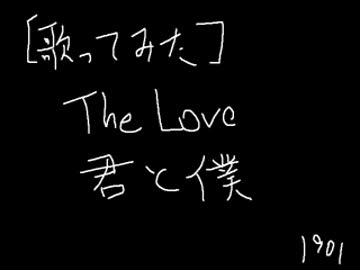 [歌ってみた]
The Love
君と僕
1901